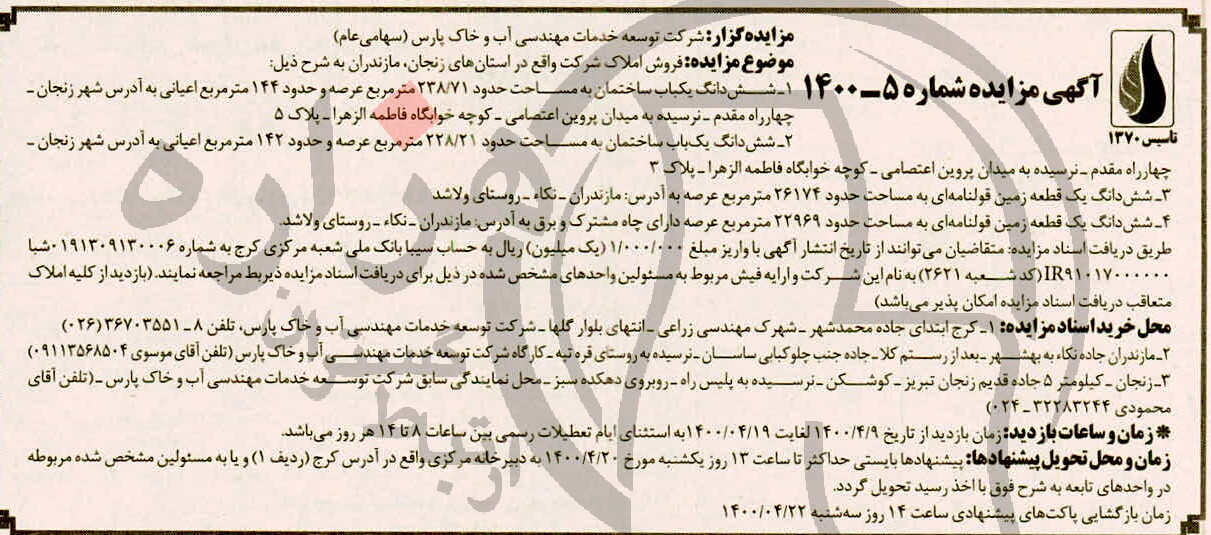 مزایده‌گزار: شرکت توسعه خدمات مهندسی آب و خاک پارس (سهامی‌عام)
موضوع مزایده: فروش املاک شرکت واقع در استان‌های زنجان، مازندران به شرح ذیل:
آگهی مزایده شماره ۵ــ۱۴۰۰
تاسیس ۱۳۷۰
۱ـ شــش‌دانگ یکباب ساختمان به مســاحت حدود ۲۳۸/۷۱ مترمربع عرصه و حدود ۱۴۴ مترمربع اعیانی به آدرس شهر زنجان ـ
چهارراه مقدم ـ نرسیده به میدان پروین اعتصامی ـ کوچه خوابگاه فاطمه الزهرا ـ پلاک ۵
۲ـ شش‌دانگ یک‌باب ساختمان به مســاحت حدود ۲۲۸/۲۱ مترمربع عرصه و حدود ۱۴۲ مترمربع اعیانی به آدرس شهر زنجان ـ
چهارراه مقدم ـ نرسیده به میدان پروین اعتصامی ـ کوچه خوابگاه فاطمه الزهرا ـ پلاک ۳
۳ـ شش‌دانگ یک قطعه زمین قولنامه‌ای به مساحت حدود ۲۶۱۷۴ مترمربع عرصه به آدرس: مازندران ـ نکاء ـ روستای ولاشد
۴ـ شش‌دانگ یک قطعه زمین قولنامه‌ای به مساحت حدود ۲۲۹۶۹ مترمربع عرصه دارای چاه مشترک و برق به آدرس: مازندران ـ نکاء ـ روستای ولاشد.
طریق دریافت اسناد مزایده: متقاضیان می‌توانند از تاریخ انتشار آگهی با واریز مبلغ ۱/۰۰۰/۰۰۰ (یک میلیون) ریال به حساب سیبا بانک ملی شعبه مرکزی کرج به شماره ۰۱۹۱۳۰۹۱۳۰۰۰۶ شبا
IR۹۱۰۱۷۰۰۰۰۰۰۰ (کد شــعبه ۲۶۲۱) به نام این شــرکت و ارایه فیش مربوط به مسئولین واحدهای مشخص شده در ذیل برای دریافت اسناد مزایده ذیربط مراجعه نمایند. (بازدید از کلیه املاک
متعاقب دریافت اسناد مزایده امکان پذیر می‌باشد)
محل خرید اسناد مزایده: ۱ـ کرج ابتدای جاده محمدشهر ـ شهرک مهندسی زراعی ـ انتهای بلوار گلها ـ شرکت توسعه خدمات مهندسی آب و خاک پارس، تلفن ۸ ـ ۳۶۷۰۳۵۵۱ (۰۲۶)
۲ـ مازندران جاده نکاء به بهشــهر ـ بعد از رســتم کلا ـ جاده جنب چلوکبابی ساســان ـ نرسیده به روستای قره تپه ـ کارگاه شرکت توسعه خدمات مهندســی آب و خاک پارس (تلفن آقای موسوی ۰۹۱۱۳۵۶۸۵۰۴)
۳ـ زنجان ـ کیلومتر ۵ جاده قدیم زنجان تبریز ـ کوشــکن ـ نرســیده به پلیس راه ـ روبروی دهکده سبز ـ محل نمایندگی سابق شرکت توســعه خدمات مهندسی آب و خاک پارس ـ (تلفن آقای
محمودی ۳۲۲۸۳۲۴۴ ـ ۰۲۴)
* زمان و ساعات بازدید: زمان بازدید از تاریخ ۱۴۰۰/۴/۹ لغایت ۱۴۰۰/۰۴/۱۹ به استثنای ایام تعطیلات رسمی بین ساعات ۸ تا ۱۴ هر روز می‌باشد.
زمان و محل تحویل پیشنهادها: پیشنهادها بایستی حداکثر تا ساعت ۱۳ روز یکشنبه مورخ ۱۴۰۰/۴/۲۰ به دبیرخانه مرکزی واقع در آدرس کرج (ردیف ۱) و یا به مسئولین مشخص شده مربوطه
در واحدهای تابعه به شرح فوق با اخذ رسید تحویل گردد.
زمان بازگشایی پاکت‌های پیشنهادی ساعت ۱۴ روز سه‌شنبه ۱۴۰۰/۰۴/۲۲
هزاره
ارتباط